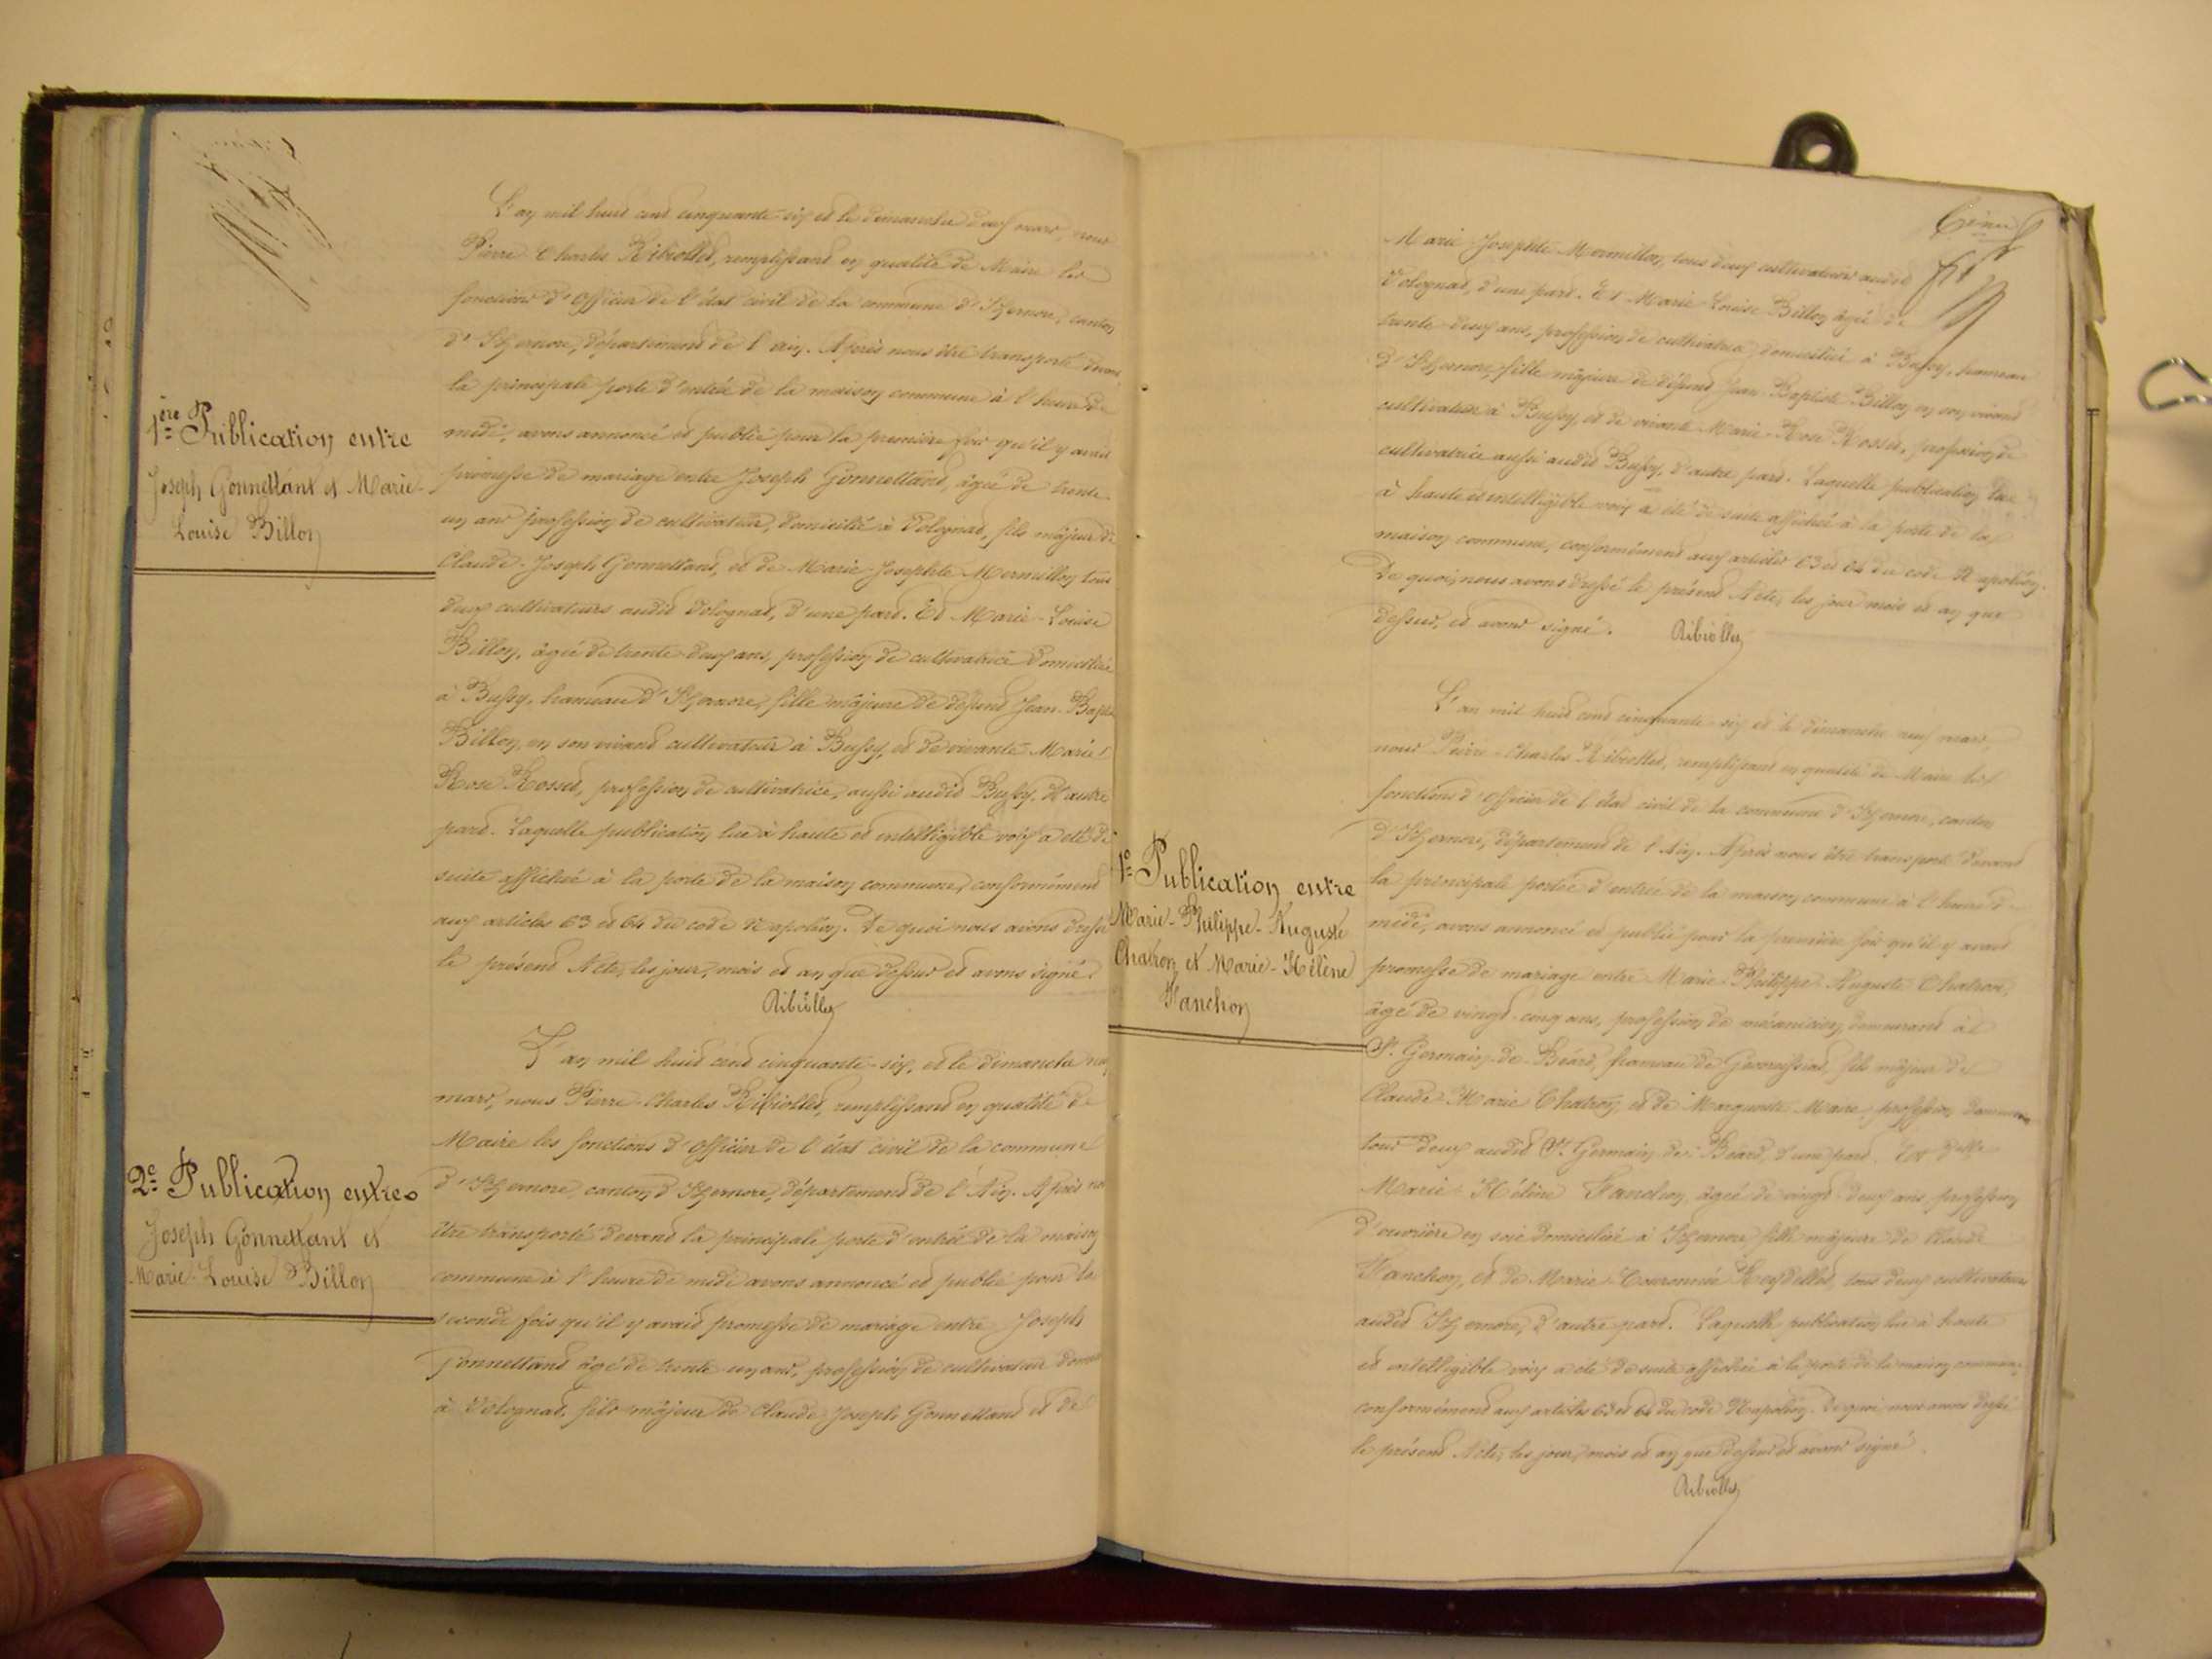 L'an mil huit cent cinquante-six et le dimanche deux mars, nous
Pierre Charles Ribiollet, remplissant en qualité de Maire les
fonctions d'Officier de l'état civil de la commune d'Izernore, canton
d'Izernore, département de l'ain. Après nous être transporté devant
la principale porte d'entrée de la maison commune à l'heure de
midi, avons annoncé et publié pour la première fois qu'il y avait
promesse de mariage entre Joseph Gonnettant, âgé de trente-
un ans profession de cultivateur, domicilié à Volognat, fils majeur de
Claude-Joseph Gonnettant, et de Marie-Josephte Mermillon tous
deux cultivateurs audit Volognat, d'une part. Et Marie-Louise
Billon, âgée de trente-deux ans, profession de cultivatrice domiciliée
à Bussy, hameau d'Izernore, fille majeure de défunt Jean-Baptiste
Billon, en son vivant cultivateur à Bussy, et de vivante Marie
Rose Rosset, profession de cultivatrice, aussi audit Bussy, d'autre
part. Laquelle publication lue à haute et intelligible voix a été de
suite affichée à la porte de la maison commune, conformément
aux articles 63 et 64 du code Napoléon. De quoi nous avons dressé
le présent Acte, les jour, mois et an que dessus et avons signé.
Ribiollet
1ère Publication entre
Joseph Gonnettant et Marie-
Louise Billon
L'an mil huit cent cinquante-six, et le dimanche neuf
mars, nous Pierre-Charles Ribiollet, remplissant en qualité de
Maire les fonctions d'Officier de l'état civil de la commune
d'Izernore, canton d'Izernore, département de l'Ain. Après nous
être transporté devant la principale porte d'entrée de la maison
commune à l'heure de midi avons annoncé et publié pour la
seconde fois qu'il y avait promesse de mariage entre Joseph
Gonnettant âgé de trente un ans, profession de cultivateur
à Volognat, fils majeur de Claude Joseph Gonnettant et de
2e Publication entre
Joseph Gonnettant et
Marie-Louise Billon
Marie Josephte Mermillon, tous deux cultivateurs audit
Volognat, d'une part. Et Marie-Louise Billon âgée de
trente-deux ans, profession de cultivatrice domiciliée à Bussy, hameau
d'Izernore, fille majeure de défunt Jean-Baptiste Billon en son vivant
cultivateur à Bussy, et de vivante Marie-Rose Rosset, profession de
cultivatrice aussi audit Bussy, d'autre part. Laquelle publication lue
à haute et intelligible voix a été de suite affichée à la porte de la
maison commune, conformément aux articles 63 et 64 du code Napoléon.
De quoi nous avons dressé le présent Acte, les jour mois et an que
dessus, et avons signé. Ribiollet
L'an mil huit cent cinquante-six et le dimanche neuf mars,
nous Pierre-Charles Ribiollet, remplissant en qualité de Maire les
fonctions d'Officier de l'état civil de la commune d'Izernore, canton
d'Izernore, département de l'Ain. Après nous être transporté devant
la principale portée d'entrée de la maison commune à l'heure de
midi, avons annoncé et publié pour la première fois qu'il y avait
promesse de mariage entre Marie-Philippe-Auguste Chatron,
âgé de vingt-cinq ans, profession de mécanicien demeurant à
St. Germain-de-Béard, hameau de Géovreissiat, fils majeur de
Claude-Marie Chatron, et de Marguerite Maire, profession
tous deux audit St. Germain-de-Béard, d'une part. Et Delle
Marie-Hélène Hanchon, âgée de vingt-deux ans, profession
d'ouvrière en soie domiciliée à Izernore fille majeure de Claude
Hanchon, et de Marie Couronnée Reydellet, tous deux cultivateurs
audit Izernore, d'autre part. Laquelle publication lue à haute
et intelligible voix a été de suite affichée à la porte de la maison commune,
conformément aux articles 63 et 64 du code Napoléon. De quoi nous avons dressé
le présent Acte, les jour, mois et an que dessus et avons signé.
Ribiollet
1e Publication entre
Marie-Philippe-Auguste
Chatron et Marie-Hélène
Hanchon